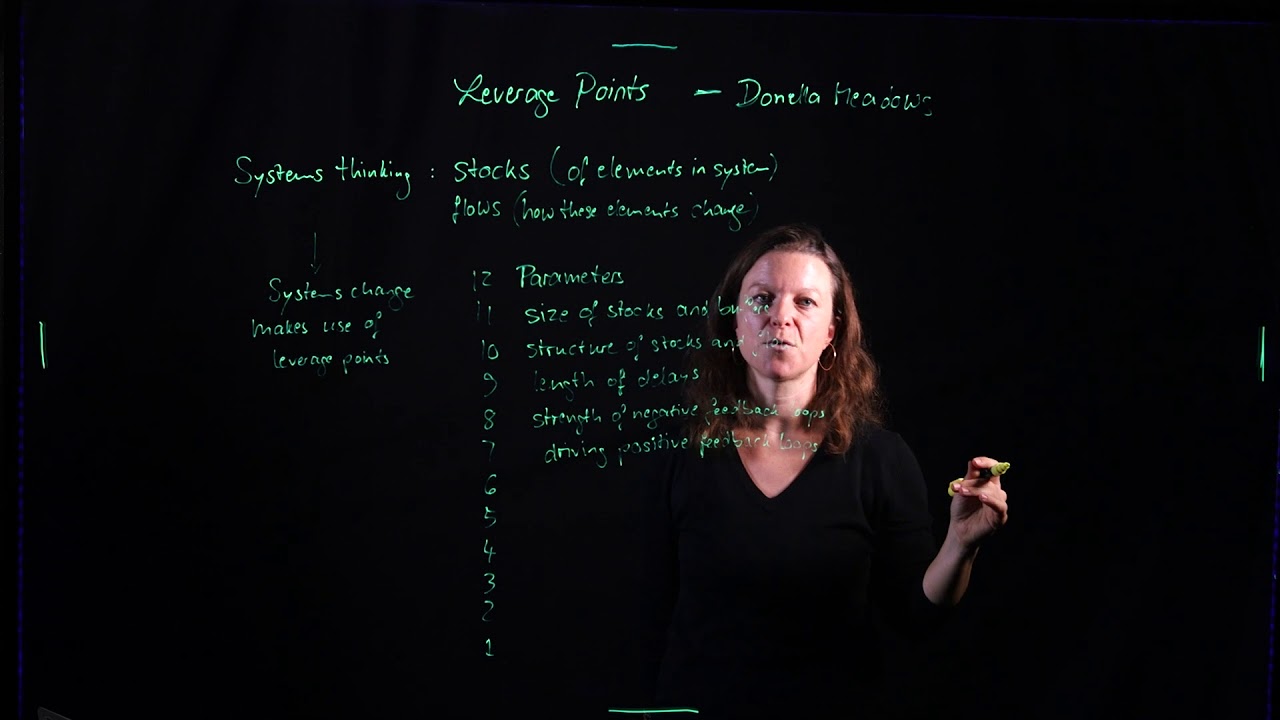 Leverage Points – Donella Meadows
Systems thinking : stocks (of elements in system)
flows (how these elements change)
↓
Systems change
makes use of
leverage points
12 Parameters
11 size of stocks and buffers
10 structure of stocks and
9 length of delays
8 strength of negative feedback loops
7 driving positive feedback loops
6
5
4
3
2
1